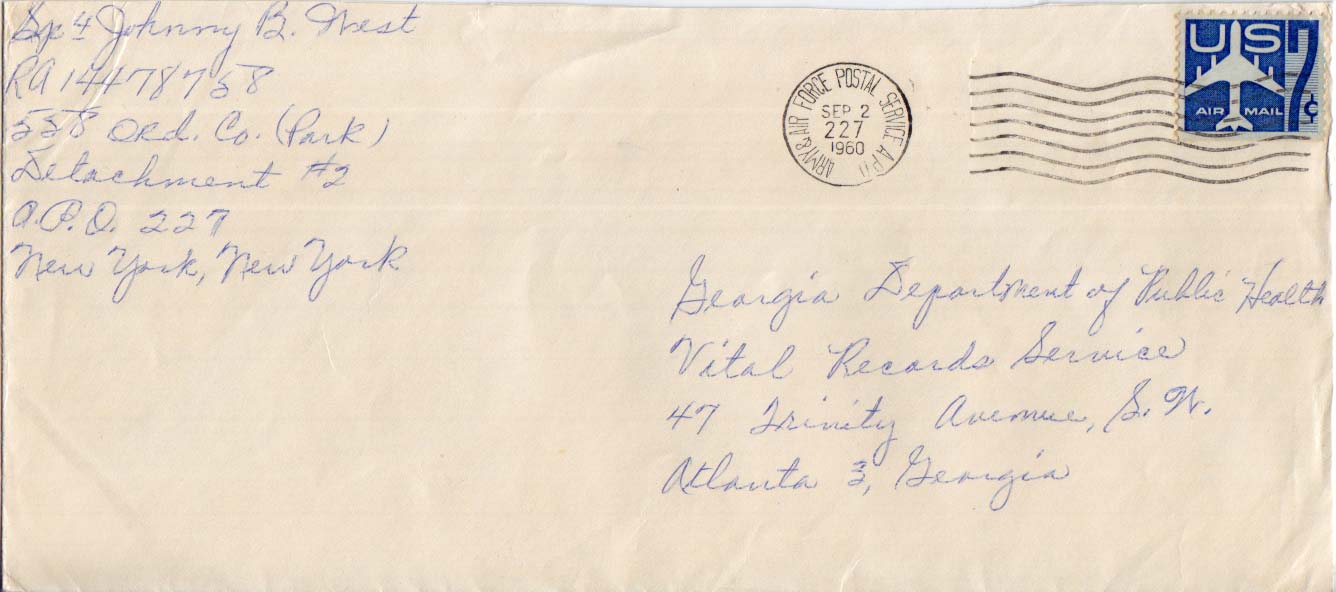 Sp 4 Johnny B. West
RA 14478758
558 Ord. Co. (Park)
Detachment #2
A.P.O. 227
New York, New York
ARMY & AIR FORCE POSTAL SERVICE A P O
SEP 2
227
1960
US 7¢
AIR MAIL
Georgia Department of Public Health
Vital Records Service
47 Trinity Avenue, S.W.
Atlanta 3, Georgia